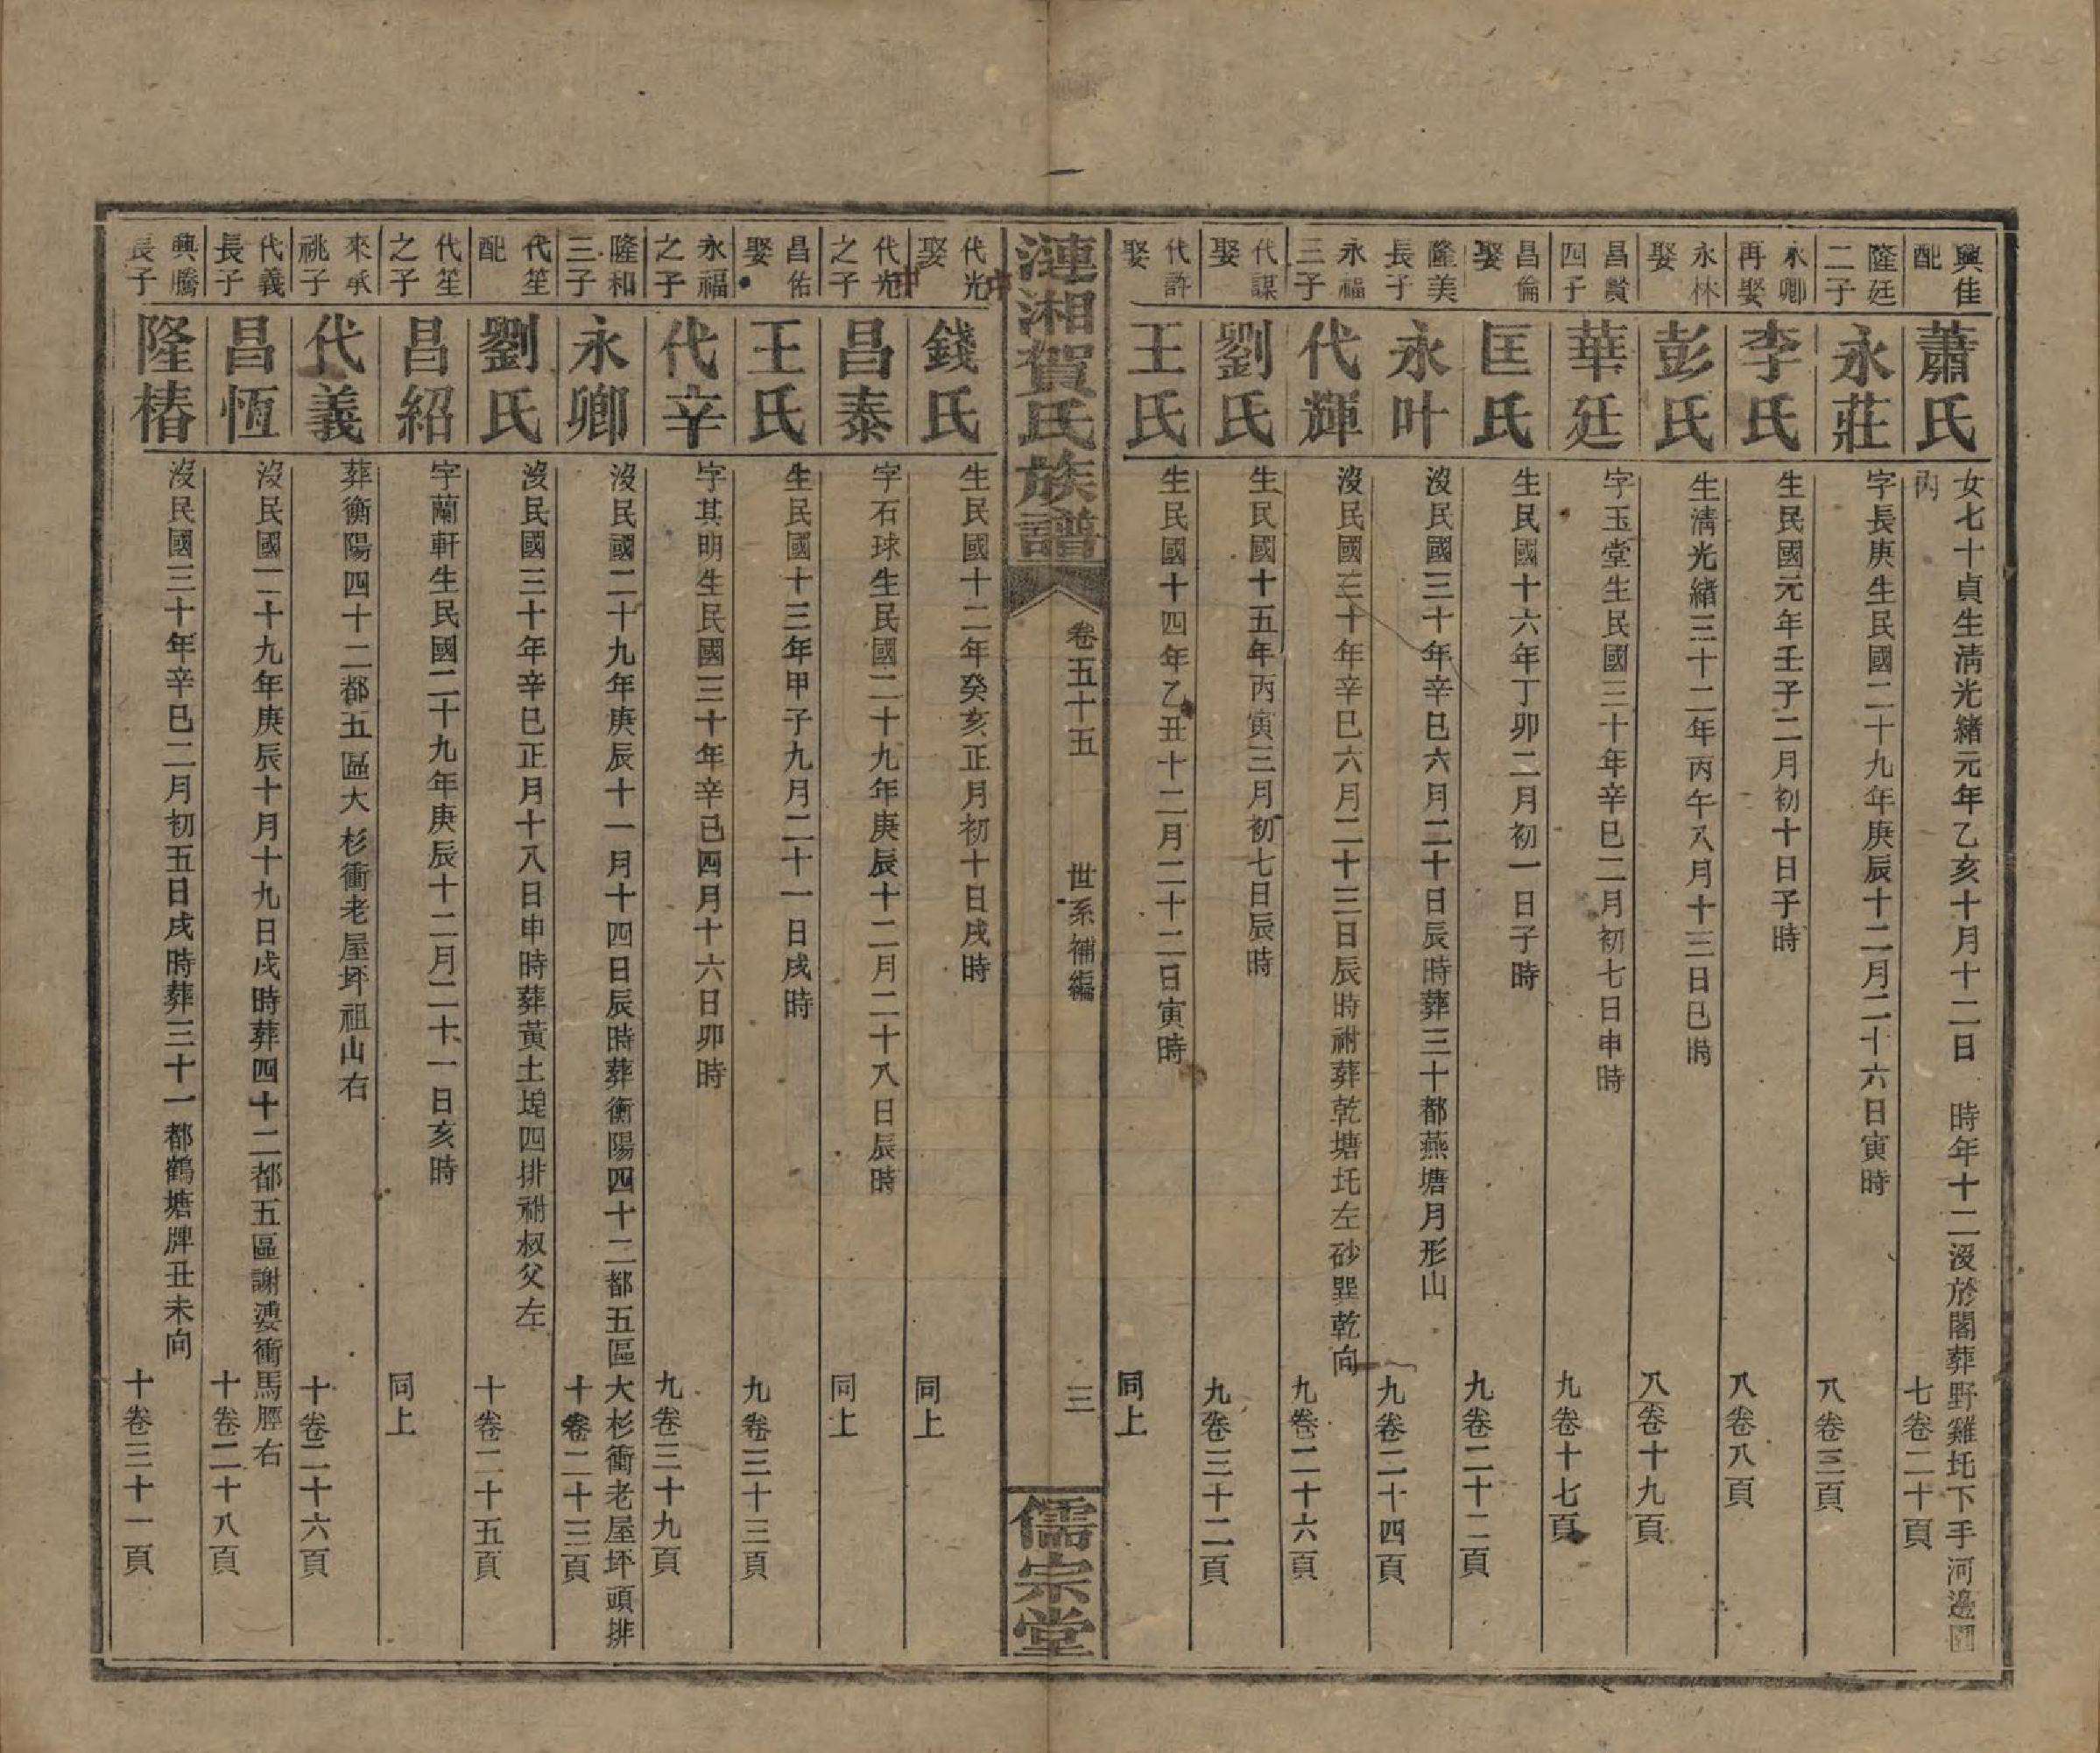 興佳配
蕭氏
女七十貞生清光緒元年乙亥十月十二日 時年十二沒於閣葬野雞圫下手河邊園內
七卷二十頁
隆廷二子
永莊
字長庚生民國二十九年庚辰十二月二十六日寅時
八卷三頁
永卿再娶
李氏
生民國元年壬子二月初十日子時
八卷八頁
永林娶
彭氏
生清光緒三十二年丙午八月十三日巳時
八卷十九頁
昌賢四子
華廷
字玉堂生民國三十年辛巳二月初七日申時
九卷十七頁
昌倫娶
匡氏
生民國十六年丁卯二月初一日子時
九卷二十二頁
隆美長子
永叶
沒民國三十年辛巳六月二十日辰時葬三十都燕塘月形山
九卷二十四頁
永福三子
代輝
沒民國三十年辛巳六月二十三日辰時祔葬乾塘圫左砂巽乾向
九卷二十六頁
代謀娶
劉氏
生民國十五年丙寅三月初七日辰時
九卷三十二頁
代許娶
王氏
生民國十四年乙丑十二月二十二日寅時
同上
漣湘賀氏族譜
卷五十五 世系補編 三
儒宗堂
代光娶
錢氏
生民國十二年癸亥正月初十日戌時
同上
代光之子
昌泰
字石球生民國二十九年庚辰十二月二十八日辰時
同上
昌佑娶
王氏
生民國十三年甲子九月二十一日戌時
九卷三十三頁
永福之子
代辛
字其明生民國三十年辛巳四月十六日卯時
九卷三十九頁
隆和三子
永卿
沒民國二十九年庚辰十一月十四日辰時葬衡陽四十二都五區大杉衝老屋坪頭排
十卷二十三頁
代笙配
劉氏
沒民國三十年辛巳正月十八日申時葬黃土墈四排祔叔父左
十卷二十五頁
代笙之子
昌紹
字蘭軒生民國二十九年庚辰十二月二十一日亥時
同上
來承祧子
代義
葬衡陽四十二都五區大杉衝老屋坪祖山右
十卷二十六頁
代義長子
昌恆
沒民國二十九年庚辰十月十九日戌時葬四十二都五區謝婆衝馬脛右
十卷二十八頁
興騰長子
隆椿
沒民國三十年辛巳二月初五日戌時葬三十一都鶴塘牌丑未向
十卷三十一頁